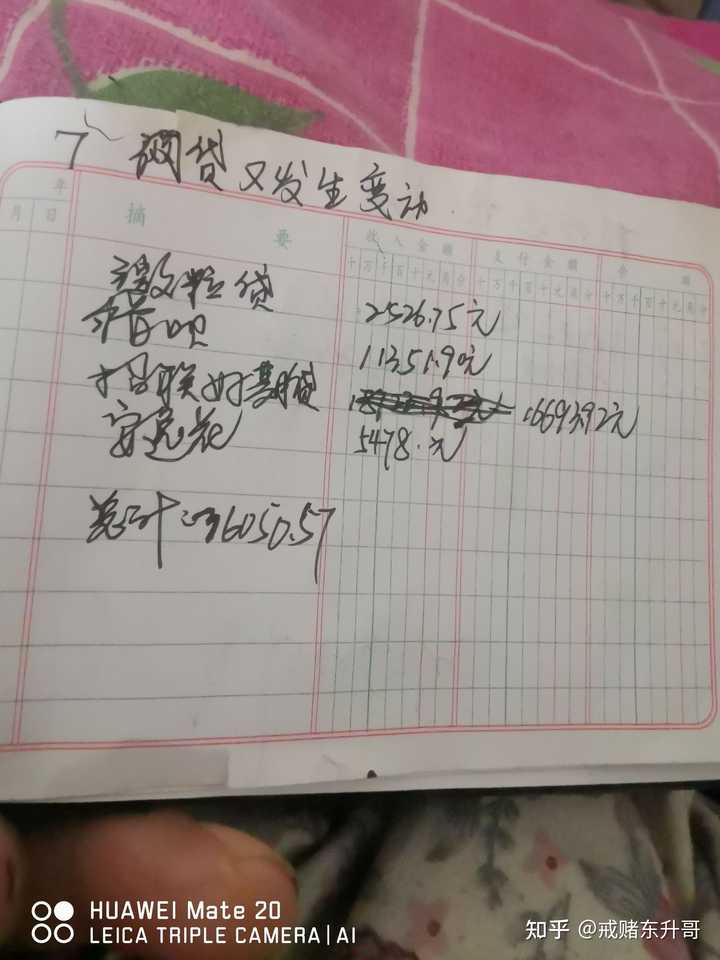 7 网贷又发生变动
年 摘要 收入金额 支付金额 余额
月 日 十万千百十元角分 十万千百十元角分 十万千百十元角分
微粒贷 2526.75元
借呗 11351.90元
招联好期贷 16693.92元
安逸花 5478.元
总计:36050.57
HUAWEI Mate 20
LEICA TRIPLE CAMERA | AI
知乎 @戒赌东升哥